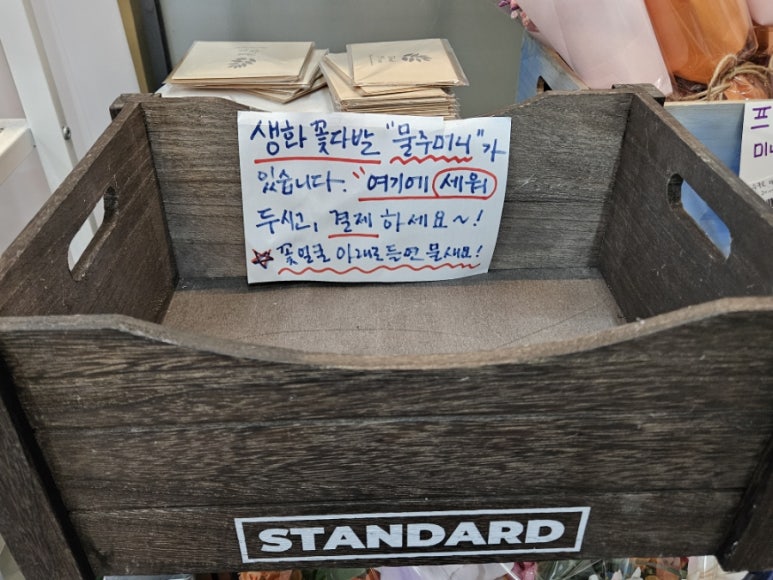 생화 꽃다발 "물주머니"가
있습니다. "여기에 세워
두시고, 결제 하세요~!
☆ 꽃얼굴 아래로들면 물새요!
프
미니
STANDARD